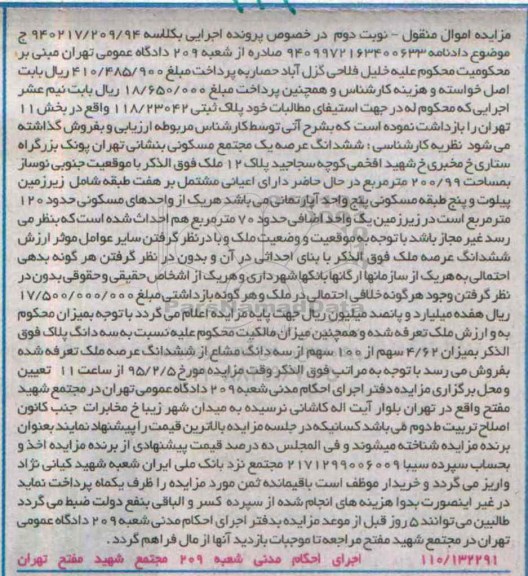 مزایده اموال منقول - نوبت دوم در خصوص پرونده اجرایی بکلاسه ۹۴۰۲۱۷/۲۰۹/۹۴ ج
موضوع دادنامه ۹۴۰۹۹۷۲۱۶۳۴۰۰۶۳۳ صادره از شعبه ۲۰۹ دادگاه عمومی تهران مبنی بر
محکومیت محکوم علیه خلیل فلاحی گزل آباد حصاربه پرداخت مبلغ ۴۱۰/۴۸۵/۹۰۰ ریال بابت
اصل خواسته و هزینه کارشناس و همچنین پرداخت مبلغ ۱۸/۶۵۰/۰۰۰ ریال بابت نیم عشر
اجرایی که محکوم له در جهت استیفای مطالبات خود پلاک ثبتی ۱۱۸/۲۳۰۴۲ واقع در بخش ۱۱
تهران را بازداشت نموده است که بشرح آتی توسط کارشناس مربوطه ارزیابی و بفروش گذاشته
می شود نظریه کارشناسی : ششدانگ عرصه یک مجتمع مسکونی بنشانی تهران پونک بزرگراه
ستاری خ مخبری خ شهید افخمی کوچه سجاجید پلاک ۱۲ ملک فوق الذکر با موقعیت جنوبی نوساز
بمساحت ۲۰۰/۹۹ مترمربع در حال حاضر دارای اعیانی مشتمل بر هفت طبقه شامل زیرزمین
پیلوت و پنج طبقه مسکونی پنج واحد آپارتمانی می باشد هریک از واحدهای مسکونی حدود ۱۲۰
مترمربع است در زیرزمین یک واحد اضافی حدود ۷۰ مترمربع هم احداث شده است که بنظر می
رسد غیر مجاز باشد با توجه به موقعیت و وضعیت ملک و با در نظر گرفتن سایر عوامل موثر ارزش
ششدانگ عرصه ملک فوق الذکر با بنای احداثی در آن و بدون در نظر گرفتن هر گونه بدهی
احتمالی به هریک از سازمانها ارگانها بانکها شهرداری و هریک از اشخاص حقیقی وحقوقی بدون در
نظر گرفتن وجود هرگونه خلافی احتمالی در ملک و هر گونه بازداشتی مبلغ ۱۷/۵۰۰/۰۰۰/۰۰۰
ریال هفده میلیارد و پانصد میلیون ریال جهت پایه مزایده اعلام می گردد با توجه بمیزان محکوم
به و ارزش ملک تعرفه شده و همچنین میزان مالکیت محکوم علیه نسبت به سه دانگ پلاک فوق
الذکر بمیزان ۴/۶۲ سهم از ۱۰۰ سهم از سه دانگ مشاع از ششدانگ عرصه ملک تعرفه شده
بفروش می رسد با توجه به مراتب فوق الذکر وقت مزایده مورخ ۹۵/۲/۵ از ساعت ۱۱ تعیین
و محل برگزاری مزایده دفتر اجرای احکام مدنی شعبه ۲۰۹ دادگاه عمومی تهران در مجتمع شهید
مفتح واقع در تهران بلوار آیت اله کاشانی نرسیده به میدان شهر زیبا خ مخابرات جنب کانون
اصلاح تربیت ط دوم می باشد کسانیکه در جلسه مزایده بالاترین قیمت را پیشنهاد نمایند بعنوان
برنده مزایده شناخته میشوند و فی المجلس ده درصد قیمت پیشنهادی از برنده مزایده اخذ و
بحساب سپرده سیبا ۲۱۷۱۲۹۹۰۰۶۰۰۹ مجتمع نزد بانک ملی ایران شعبه شهید کیانی نژاد
واریز می گردد و خریدار موظف است باقیمانده ثمن مورد مزایده را ظرف یکماه پرداخت نماید
در غیر اینصورت بدوا هزینه های انجام شده از سپرده کسر و الباقی بنفع دولت ضبط می گردد
طالبین می توانند ۵ روز قبل از موعد مزایده بدفتر اجرای احکام مدنی شعبه ۲۰۹ دادگاه عمومی
تهران در مجتمع شهید مفتح مراجعه تا موجبات بازدید آنها از مال فراهم گردد.
۱۱۰/۱۳۲۲۹۱ اجرای احکام مدنی شعبه ۲۰۹ مجتمع شهید مفتح تهران